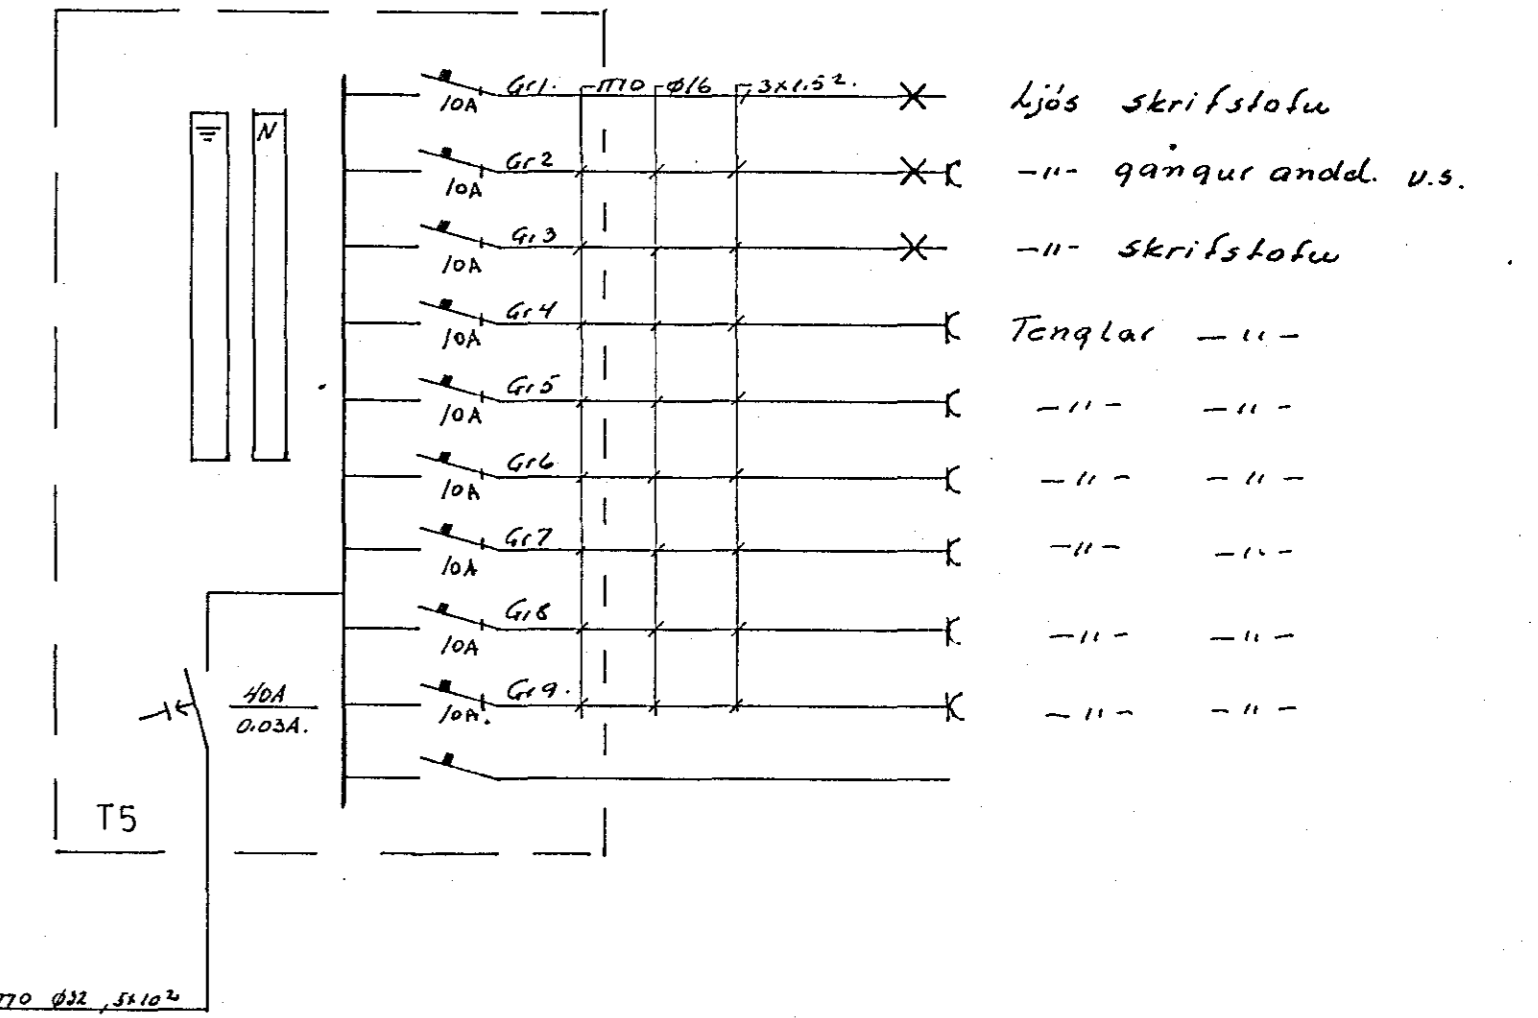 Gr1. m10 ø16 3x1.5². Ljós skrifstofu
10A
N
Gr2 -"- gangur andd. v.s.
10A
Gr3 -"- skrifstofu
10A
Gr4 Tenglar -"-
10A
Gr5 -"- -"-
10A
Gr6 -"- -"-
10A
Gr7 -"- -"-
10A
Gr8 -"- -"-
10A
Gr9. -"- -"-
10A.
40A
0.03A.
T5
ø32, 5x10²